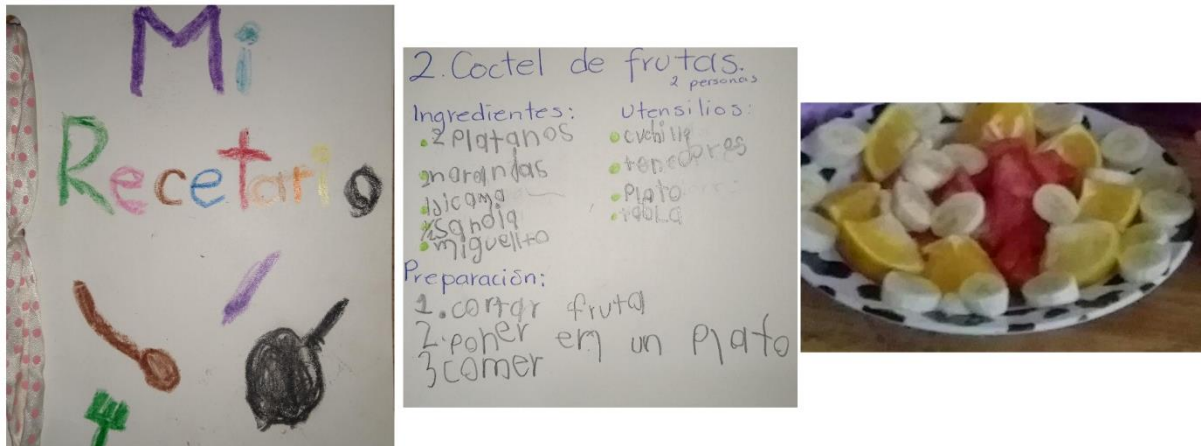 Mi
Recetario
2. Coctel de frutas.
2 personas
Ingredientes:
2 Platanos
narandas
jicama
1/2 sandia
miguelito
Utensilios:
cuchillo
tenedores
Plato
tabla
Preparación:
1. cortar fruta
2. poner en un Plato
3 comer